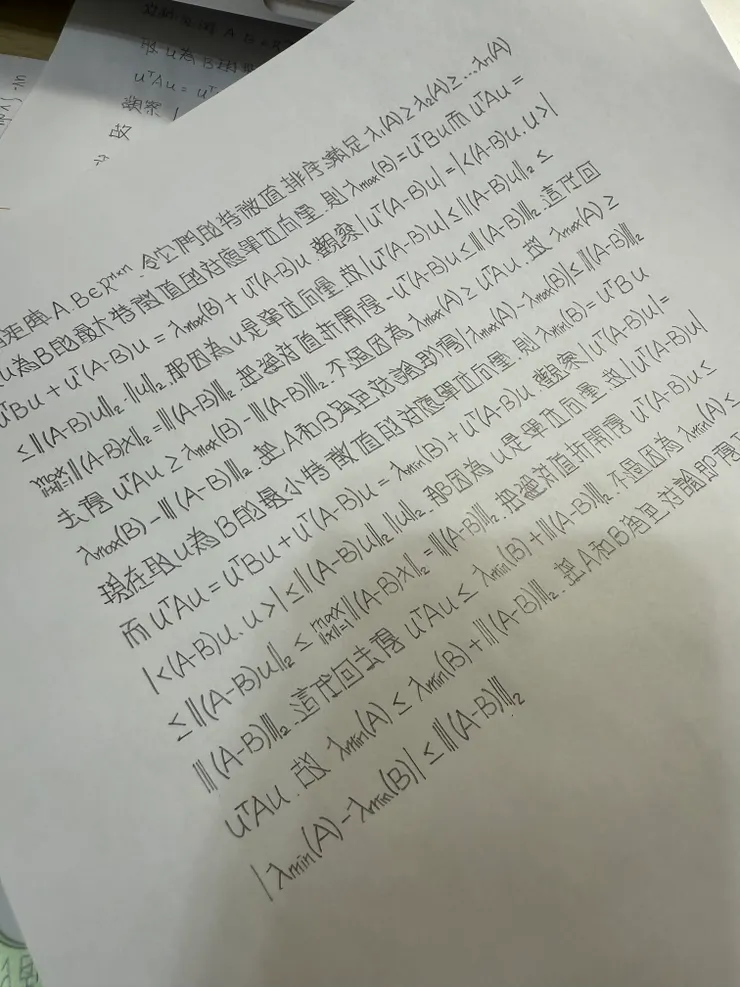 對 A B
取 u 為 B
uᵀAu = uᵀ
觀察 |
故
矩陣 A, B ∈ ℝⁿˣⁿ. 令它們的特徵值排序滿足 λ₁(A) ≥ λ₂(A) ≥ … λₙ(A)
u 為 B 的最大特徵值的對應單位向量. 則 λmax(B) = uᵀBu 而 uᵀAu =
uᵀBu + uᵀ(A-B)u = λmax(B) + uᵀ(A-B)u. 觀察 |uᵀ(A-B)u| = |<(A-B)u, u>|
≤ ||(A-B)u||₂ · ||u||₂. 那因為 u 是單位向量. 故 |uᵀ(A-B)u| ≤ ||(A-B)u||₂ ≤
max ||x||=1 ||(A-B)x||₂ = |||(A-B)|||₂. 把絕對值拆開得 -uᵀ(A-B)u ≤ |||(A-B)|||₂. 這代回
去得 uᵀAu ≥ λmax(B) - |||(A-B)|||₂. 不過因為 λmax(A) ≥ uᵀAu. 故 λmax(A) ≥
λmax(B) - |||(A-B)|||₂. 把 A 和 B 角色對調即得 |λmax(A) - λmax(B)| ≤ |||(A-B)|||₂
現在取 u 為 B 的最小特徵值的對應單位向量. 則 λmin(B) = uᵀBu
而 uᵀAu = uᵀBu + uᵀ(A-B)u = λmin(B) + uᵀ(A-B)u 觀察 |uᵀ(A-B)u| =
|<(A-B)u, u>| ≤ ||(A-B)u||₂ ||u||₂. 那因為 u 是單位向量. 故 |uᵀ(A-B)u|
≤ ||(A-B)u||₂ ≤ max ||x||=1 ||(A-B)x||₂ = |||(A-B)|||₂. 把絕對值拆開得 uᵀ(A-B)u ≤
|||(A-B)|||₂. 這代回去得 uᵀAu ≤ λmin(B) + |||(A-B)|||₂. 不過因為 λmin(A) ≤
uᵀAu. 故 λmin(A) ≤ λmin(B) + |||(A-B)|||₂. 把 A 和 B 角色對調即得
|λmin(A) - λmin(B)| ≤ |||(A-B)|||₂